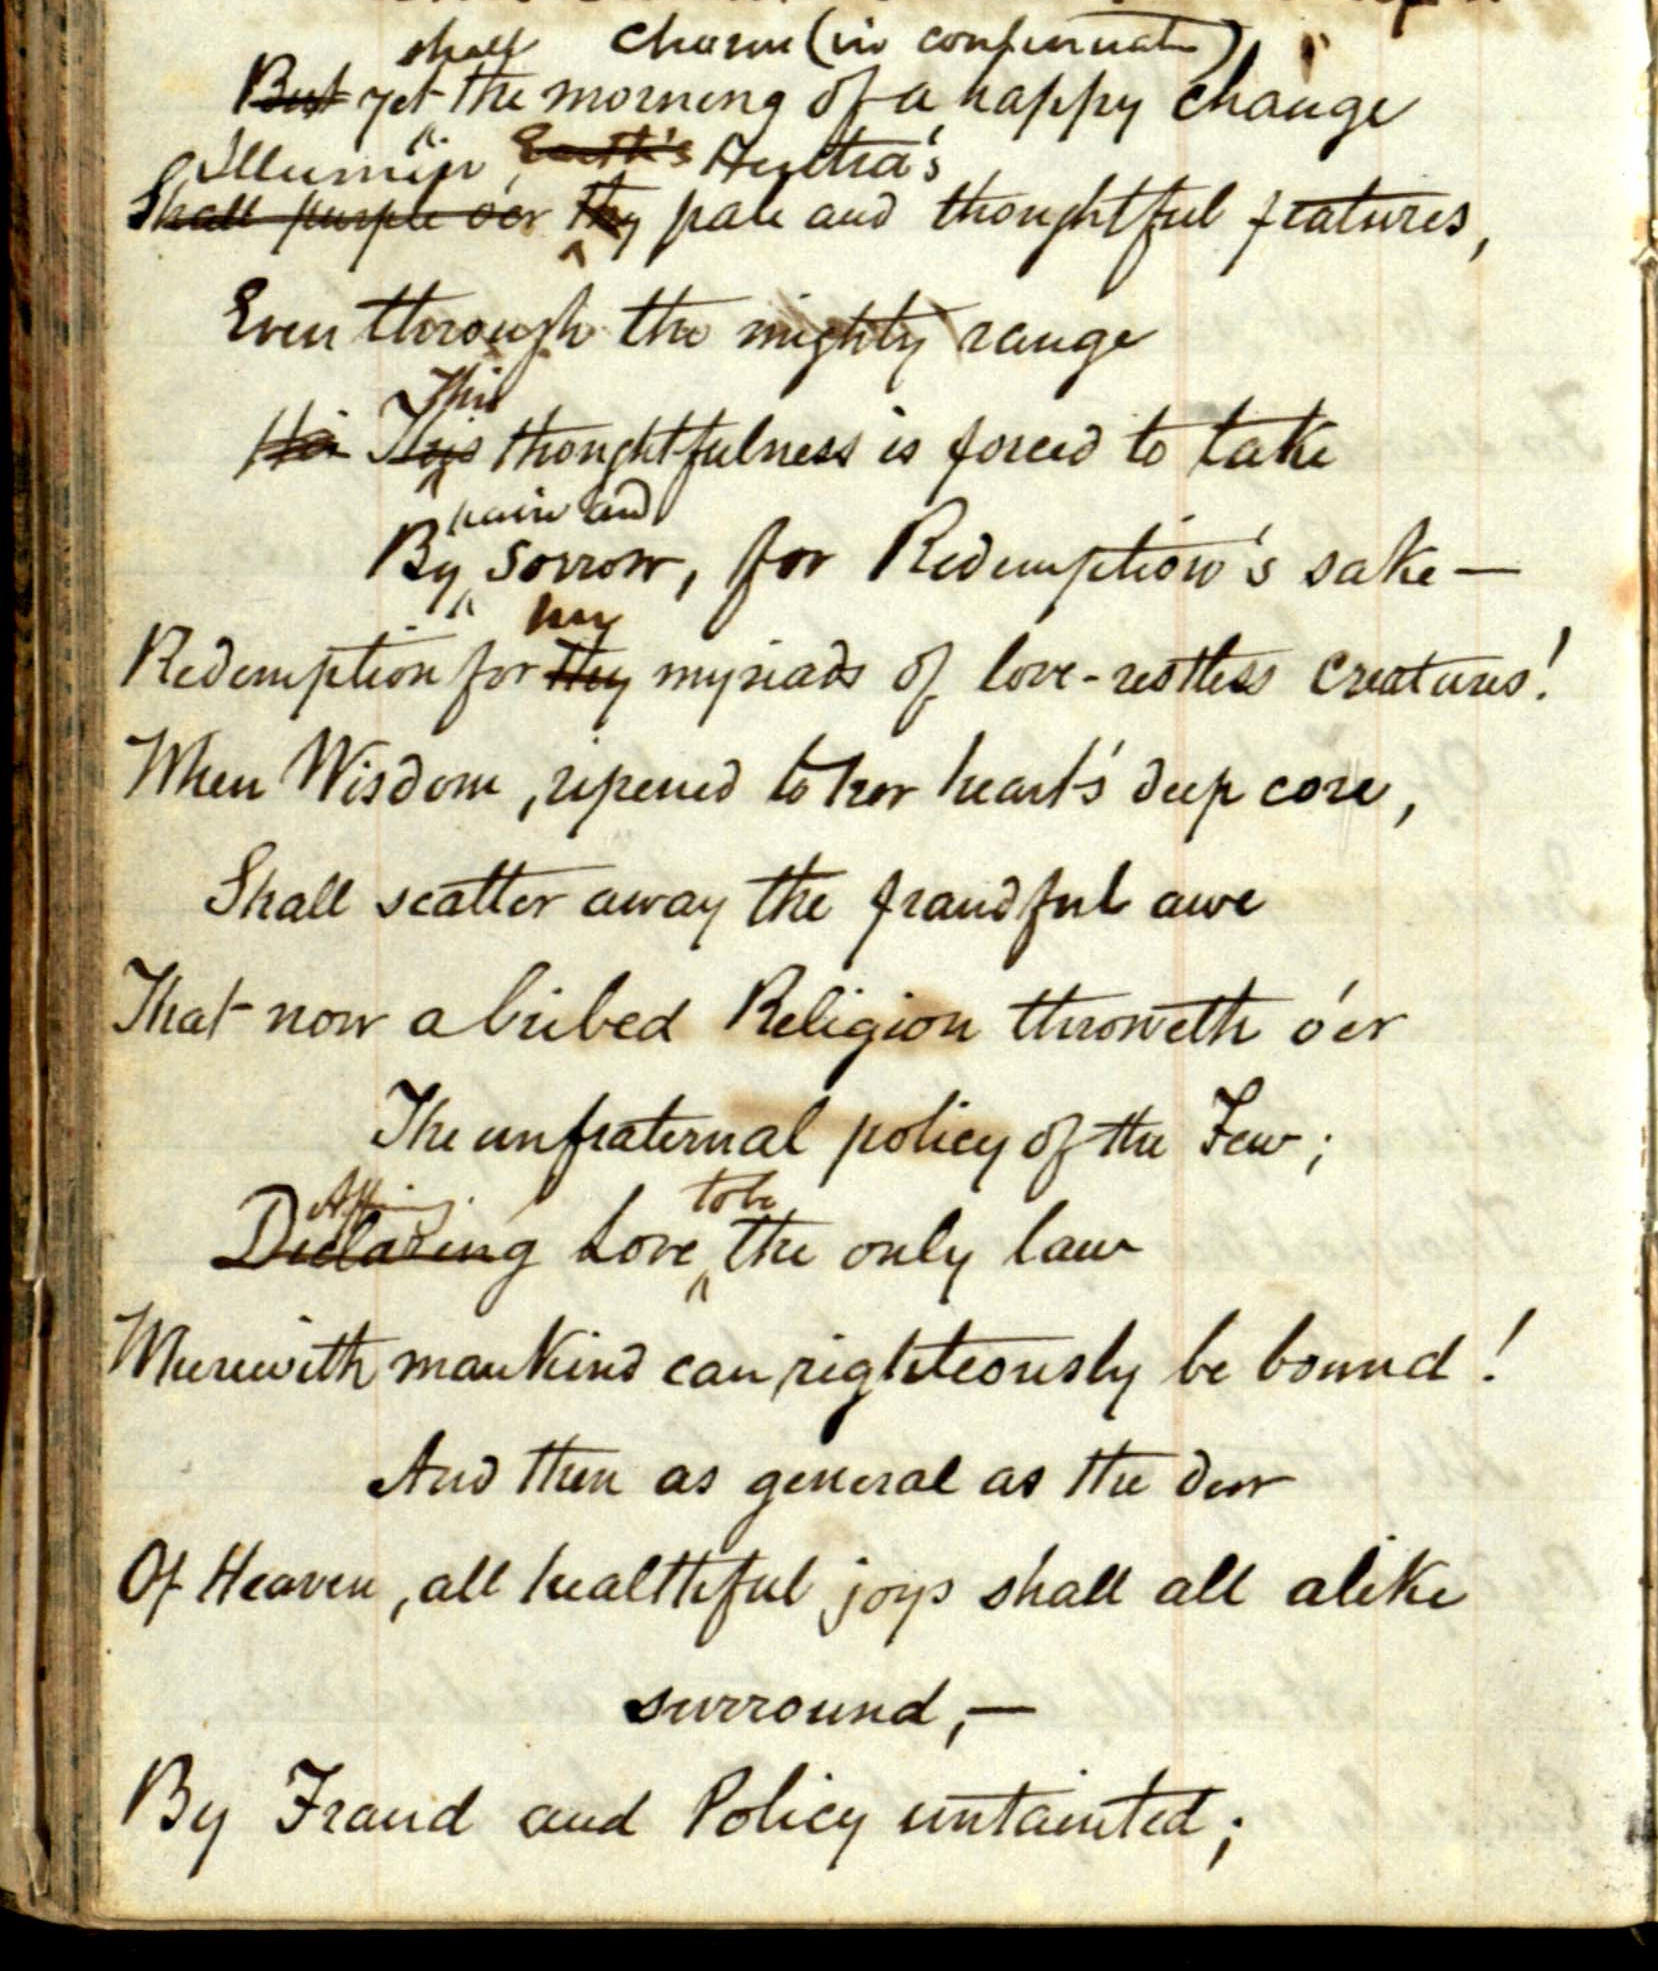 shall charm (in
~~But~~ yet the morning of a happy change
Illumin ~~Earth's~~ Hertha's
~~Shall purple o'er~~ ~~Thy~~ pale and thoughtful features,
Even through the mighty range
This
~~This~~ thoughtfulness is forced to take
pain and
By sorrow, for Redemption's sake —
her
Redemption for ~~thy~~ myriads of love-restless creatures!
When Wisdom, ripened to her heart's deep core,
Shall scatter away the fraudful awe
That now a bribed Religion throweth o'er
The unfraternal policy of the Few;
to be
~~Declaring~~ Love the only law
Wherewith mankind can righteously be bound!
And then as general as the dew
Of Heaven, all healthful joys shall all alike
surround,—
By Fraud and Policy untainted;